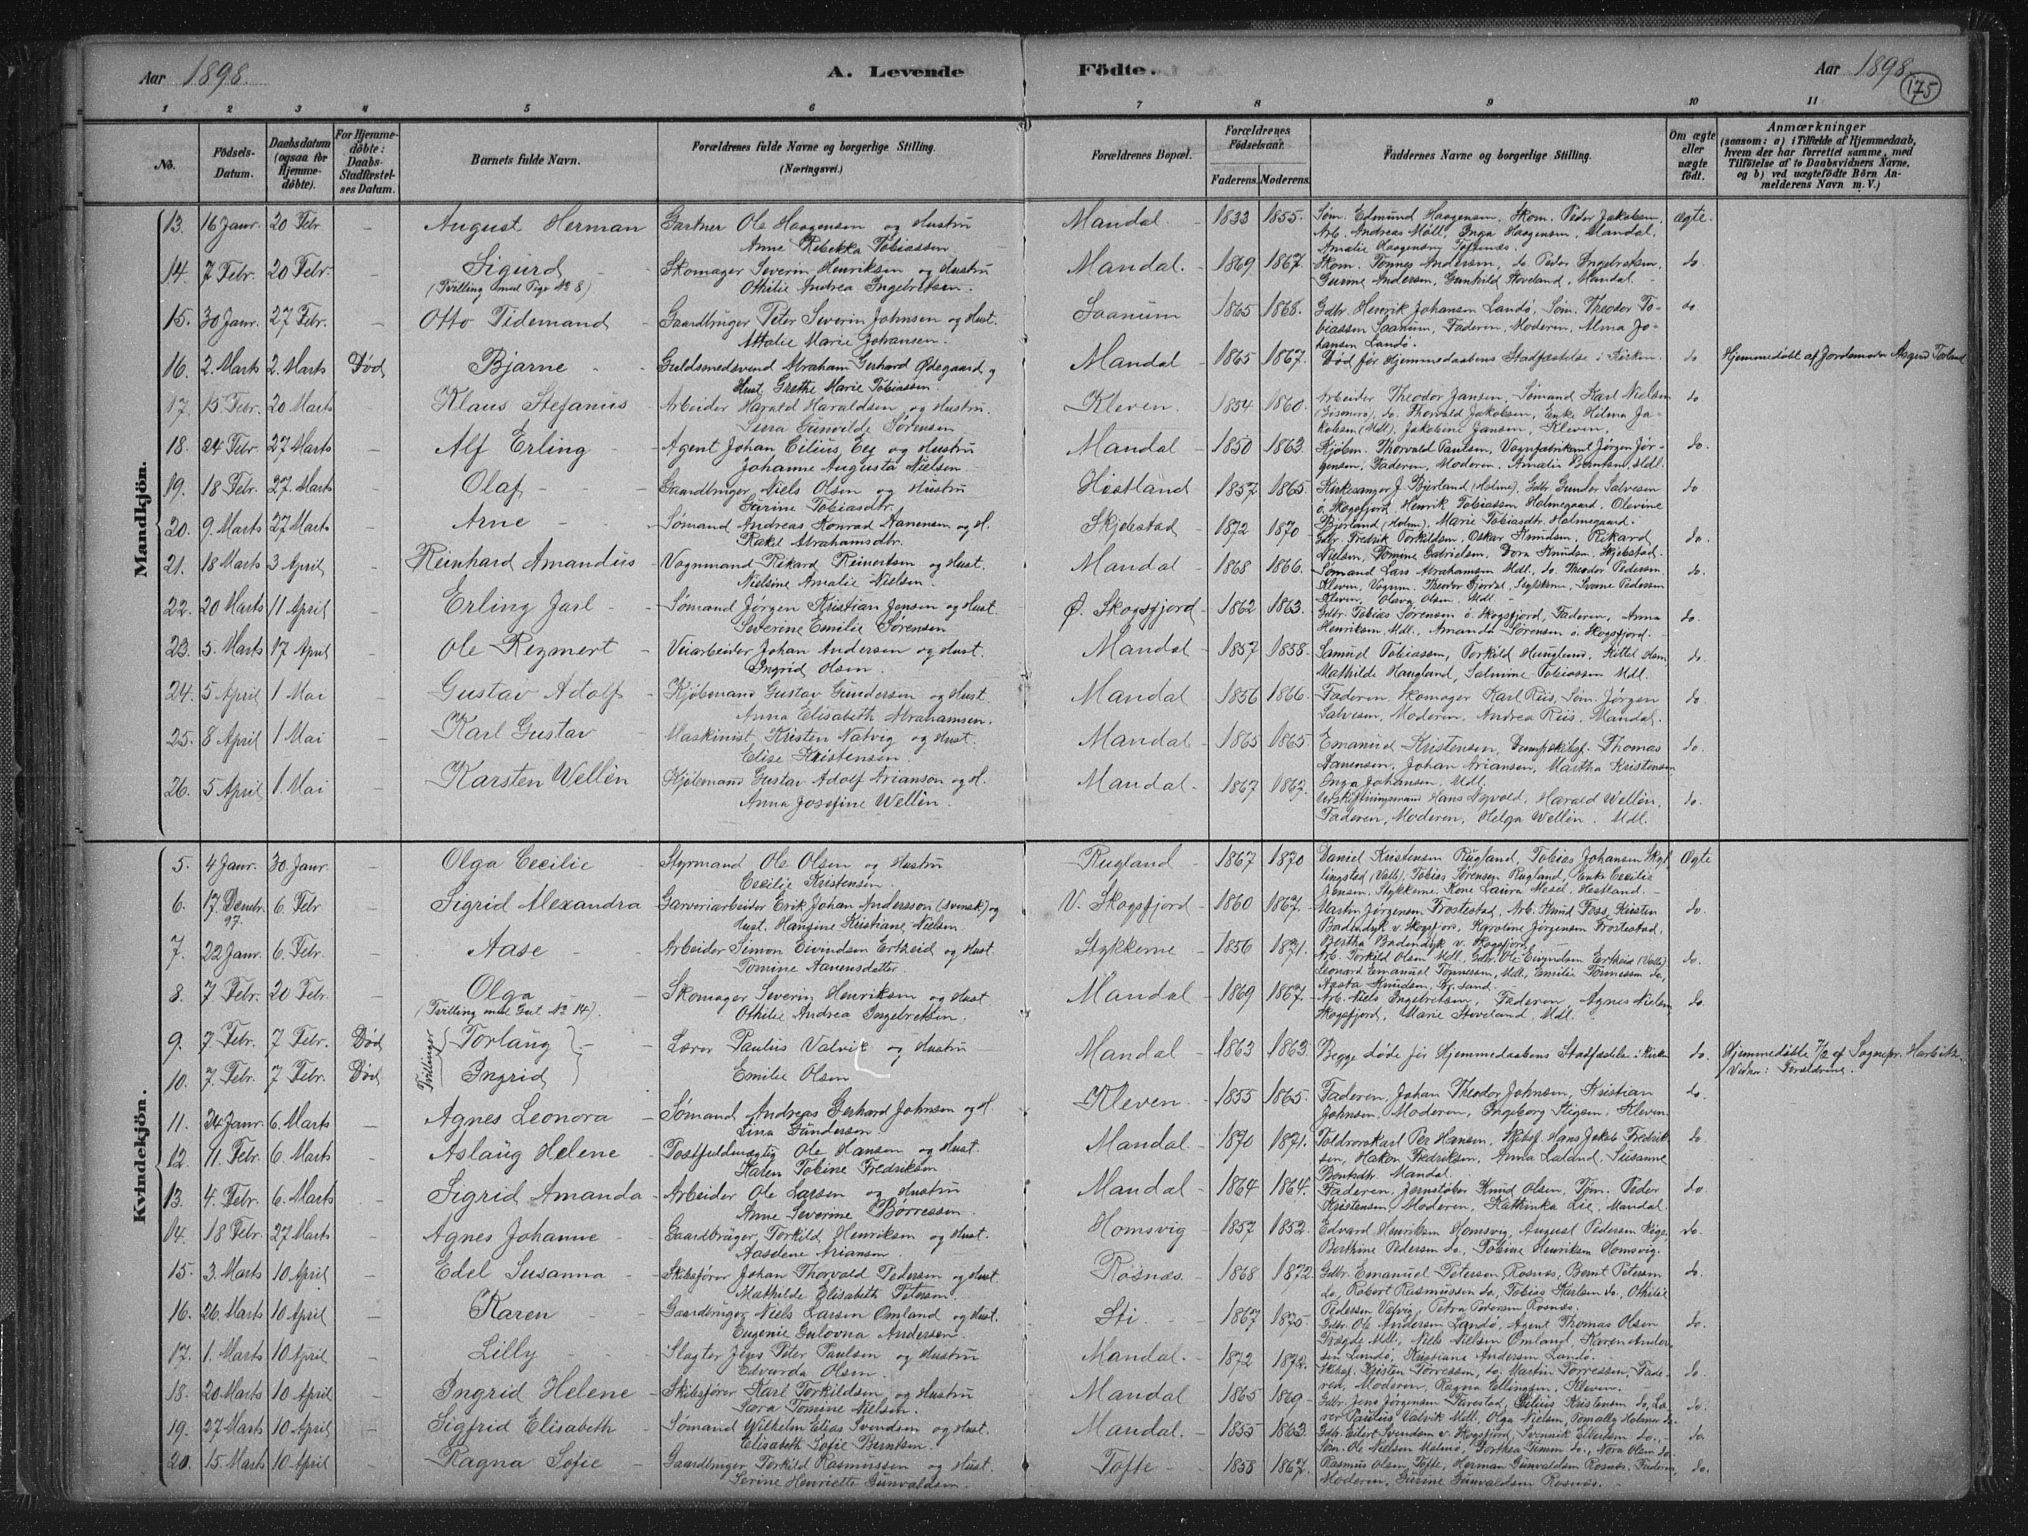 Aar 1898.
A. Levende
Födte.
Aar 1898
175
1 2 3 4 5 6 7 8 9 10 11
No.
Födsels-
Datum.
Daabsdatum
(ogsaa for
Hjemme-
döbte).
For Hjemme-
döbte:
Daabs-
Stadfæstel-
ses Datum.
Barnets fulde Navn.
Forældrenes fulde Navne og borgerlige Stilling.
(Næringsvei.)
Forældrenes Bopæl.
Forældrenes
Födselsaar.
Faderens. Moderens.
Faddernes Navne og borgerlige Stilling.
Om ægte
eller
uægte
födt.
Anmærkninger
(saasom: a) i Tilfælde af Hjemmedaab,
hvem der har forrettet samme, med
Tilföielse af to Daabsvidners Navne,
og b) ved uægtefödte Börn An-
melderens Navn m. V.)
Mandkjön.
13. 16 Janr. 20 Febr. - August Herman Gartner Ole Haagensen og Hustru Mandal 1833 1855. Søm. Edmund Haagensen, Skom. Peder Jakobsen, ægte.
Anne Rebekka Tobiassen. Arb. Andreas Møll, Inga Haagensen, Mandal,
14. 7 Febr. 20 Febr. - Sigurd Skomager Severin Henriksen og Hustru Mandal. 1869 1867. Skom. Tønnes Andersen, do. Peder Ingebretsen, do.
(Tvilling med Pige No 8) Othilie Andrea Ingebretsen. Gunhild Stoveland, Mandal.
15. 30 Janr. 27 Febr. - Otto Tidemand Gaardbruger Peter Severin Johnsen og Hust. Saanum 1865 1868. Gdbr. Henrik Johansen Landø, Søm. Theodor To- do
Marie Johansen. biassen Saanum, Faderen, Moderen, Alma Jo-
hansen Landø.
16. 2. Marts 2. Marts Død Bjarne Guldsmedsvend Abraham Gerhard Ødegaard og Mandal 1865 1867. Død før Hjemmedaabens Stadfæstelse i Kirken. do Hjemmedøbt af Jordemoder
Hust. Grethe Marie Tobiassen.
17. 15 Febr. 20 Marts - Klaus Stefanus Arbeider Harald Haraldsen og Hustru Kleven. 1854 1860. Arbeider Theodor Jansen, Sømand Karl Nielsen do
Gunvilde Sørensen do. Thorvald Jakobsen, Enke Helma Ja-
kobsen (Mdl), Jakobine Jansen, Kleven.
18. 24 Febr. 27 Marts - Alf Erling Agent Johan Cilius Eeg og Hustru Mandal 1850 1863. Thorvald Paulsen, Vognfabrikant Jørgen Jør- do.
Johanne Augusta Nielsen. gensen, Faderen, Moderen,
19. 18 Febr. 27. Marts Olaf Gaardbruger Niels Olsen og Hustru Hestland 1857 1865. Kirkesanger J. Bjerland (Holme), Gdbr. Gunder Salvesen do
Tobiasdtr. ø. Skogsfjord, Henrik Tobiassen Holmegaard, Olevine
20. 9 Marts 27 Marts Arne Sømand Andreas Konrad Aanensen og H. Skjebstad 1872 1870 Bjerland (Holm), Marie Tobiasdtr. Holmegaard.
Rakel Abrahamsdtr. Gdbr. Fredrik Torkildsen, Oskar Knudsen, Rikard do.
21. 18 Marts 3 April Reinhard Amandus Vognmand Rikard Reinertsen og Hust. Mandal 1868 1866. Nielsen, Tomine Gabrielsen, Dora Knudsen, Skjebstad.
Nielsine Amalie Nielsen. Sømand Lars Abrahamsen Mdl, do. Theodor Pedersen do.
22. 20 Marts 11 April - Erling Jarl Sømand Jørgen Kristian Jensen og Hust. Ø. Skogsfjord 1862 1863.
Severine Emilie Sørensen Gdbr. Tobias Sørensen ø. Skogsfjord, Faderen, Anna do.
Henriksen Mdl., Amanda Sørensen ø. Skogsfjord.
23. 5. Marts 17 April - Ole Regmert Veiarbeider Johan Andersen og Hust. Mandal 1857 1858. Samuel Tobiassen, Torkild Haugland, do.
Ingrid Olsen. Mathilde Haugland, Tobiassen Mdl.
24. 5 April 1 Mai Gustav Adolf Kjøbmand Gustav Gundersen og Hust. Mandal 1856 1866. Faderen, Skomager Karl Riis, Søm. Jørgen do
Anna Elisabeth Abrahamsen. Salvesen, Moderen, Andrea Riis, Mandal.
25. 8 April 1 Mai Karl Gustav Maskinist Kristen Natvig og Hust. Mandal 1865 1865. Emanuel Kristensen, Dampskibsf. Thomas do.
Elise Kristensen. Aanensen, Johan Ariansen, Martha Kristensen
Inga Johansen, Mdl.
26. 5 April 1. Mai Karsten Wellén Kjøbmand Gustav Adolf Arianson og H. Mandal 1867 1867. Hans Nyvold, Harald Wellén, do.
Anna Josefine Wellén. Faderen, Moderen, Helga Wellén. Mdl.
Kvindekjön.
5. 4 Janr. 30 Janr. - Olga Cecilie Styrmand Ole Olsen og Hustru Rugland 1867 1870 Daniel Kristensen Rugland, Tobias Johansen Ægte
Cecilie Kristensen. Tobias Sørensen Rugland, Enke Cecilie
6. 17. Dembr. 97. 6 Febr. - Sigrid Alexandra Garveriarbeider Erik Johan Andersson (svensk) og V. Skogsfjord 1860 1867. Martin Jørgensen Frøstestad, Arb. Knud Foss, Kirsten do.
Hust. Hangine Kristiane Nielsen. Karoline Jørgensen Frøstestad,
7. 22 Janr. 6. Febr. - Aase Arbeider Simon Eivindsen Ertzeid og Hust. Stykkerne 1856 1871.
Tomine Aanensdatter Arb. Torkild Olsen Mdl. Gdbr. Ole Eivindsen Ertzeid (Valle) do.
8. 7 Febr. 20 Febr. - Olga Skomager Severin Henriksen og Hust. Mandal 1869 1867.
(Tvilling med Gut No 14). Othilie Andrea Ingebretsen. Arb. Niels Ingebretsen, Faderen, Agnes Nielsen do.
Skogsfjord, Marie Stoveland, Mdl.
9. 7. Febr. 7 Febr. Død Tvillinger Torlaug Lærer Paulius Valvik og Hustru Mandal 1863 1863. Begge døde før Hjemmedaabens Stadfæstelse i Kirken do. Hjemmedøbte 7/2 af Sognepr.
10. 7. Febr. 7 Febr. Død Ingrid Emilie Olsen
11. 24 Janr. 6. Marts Agnes Leonora Sømand Andreas Gerhard Johnsen og H. Kleven. 1855 1865. Faderen, Johan Theodor Johnsen, Kristian do.
Lina Gundersen. Johnsen, Moderen, Ingeborg Stigen, Kleven
12. 11. Febr. 6. Marts - Aslaug Helene Postfuldmægtig Ole Hansen og Hust. Mandal. 1870 1871. Toldrorskarl Per Hansen, Skibsf. Hans Jakob Fredrik- do.
Karen Tobine Fredriksen. sen, Hakon Fredriksen, Anna Laland, Susanne
13. 4. Febr. 6. Marts - Sigrid Amanda Arbeider Ole Larsen og Hustru Mandal 1864 1864. Mandal.
Anne Severine Børressen. Faderen, Knud Olsen, Tjm. Peder do.
Kristensen, Moderen, Kathinka Lie, Mandal.
14. 18 Febr. 27 Marts - Agnes Johanne Gaardbruger Torkild Henriksen og Hust. Homsvig 1857 1852. Edvard Henriksen Homsvig, August Pedersen do.
Aasdene Ariansen. Berthine Pedersen do, Tobine Henriksen Homsvig.
15. 3. Marts 10 April - Edel Susanna Skibsfører Johan Thorvald Pedersen og Hust. Rosnæs. 1868 1872. Gdbr. Emanuel Petersen Rosnæs, Bernt Petersen do.
Mathilde Elisabeth Petersen. do, Robert Rasmussen do, Tobias Karlsen do, Othilie
Pedersen Valvig, Petra Pedersen Rosnæs.
16. 26. Marts 10 April - Karen Gaardbruger Niels Larsen Omland og Hust. Sti 1867 1875. Gdbr. Ole Andersen Landø, Agent Thomas Olsen do.
Eugenie Gulovna Andersen. Mdl, Niels Nielsen Omland, Karen Ander-
17. 1. Marts 10 April - Lilly Slagter Jens Peter Paulsen og Hustru Mandal. 1872 1872. sen Landø, Kristiane Andersen Landø.
Edvarda Olsen. Skibsf. Kristen Torressen, do. Martin Torressen, Fade- do.
ren, Moderen, Ragna Ellingsen, Kleven.
18. 20 Marts 10 April - Ingrid Helene Skibsfører Karl Torkildsen og Hustru Mandal 1865 1869. Gdbr. Jens Jørgensen Farestad, do.
Sara Tomine Nielsen. Paulius Valvik Mdl, Olga Nielsen,
19. 27 Marts 10 April - Sigfrid Elisabeth Sømand Wilhelm Elias Svendsen og Hust. Mandal. 1855 1863. Gdbr. Eilert Svendsen v. Skogsfjord, do.
Elisabeth Sofie Berntsen. Søm. Ole Nielsen Malmø, Dorthea Timm do., Nora Olsen do.
20. 15 Marts 10 April - Ragna Sofie Gaardbruger Torkild Rasmussen og Hust. Tofte 1858 1867. Rasmus Olsen, Tofte, Herman Gunvaldsen Rosnæs, Faderen, do.
Serine Henriette Gunvaldsen. Moderen, Gurine Gunvaldsen Rosnæs.